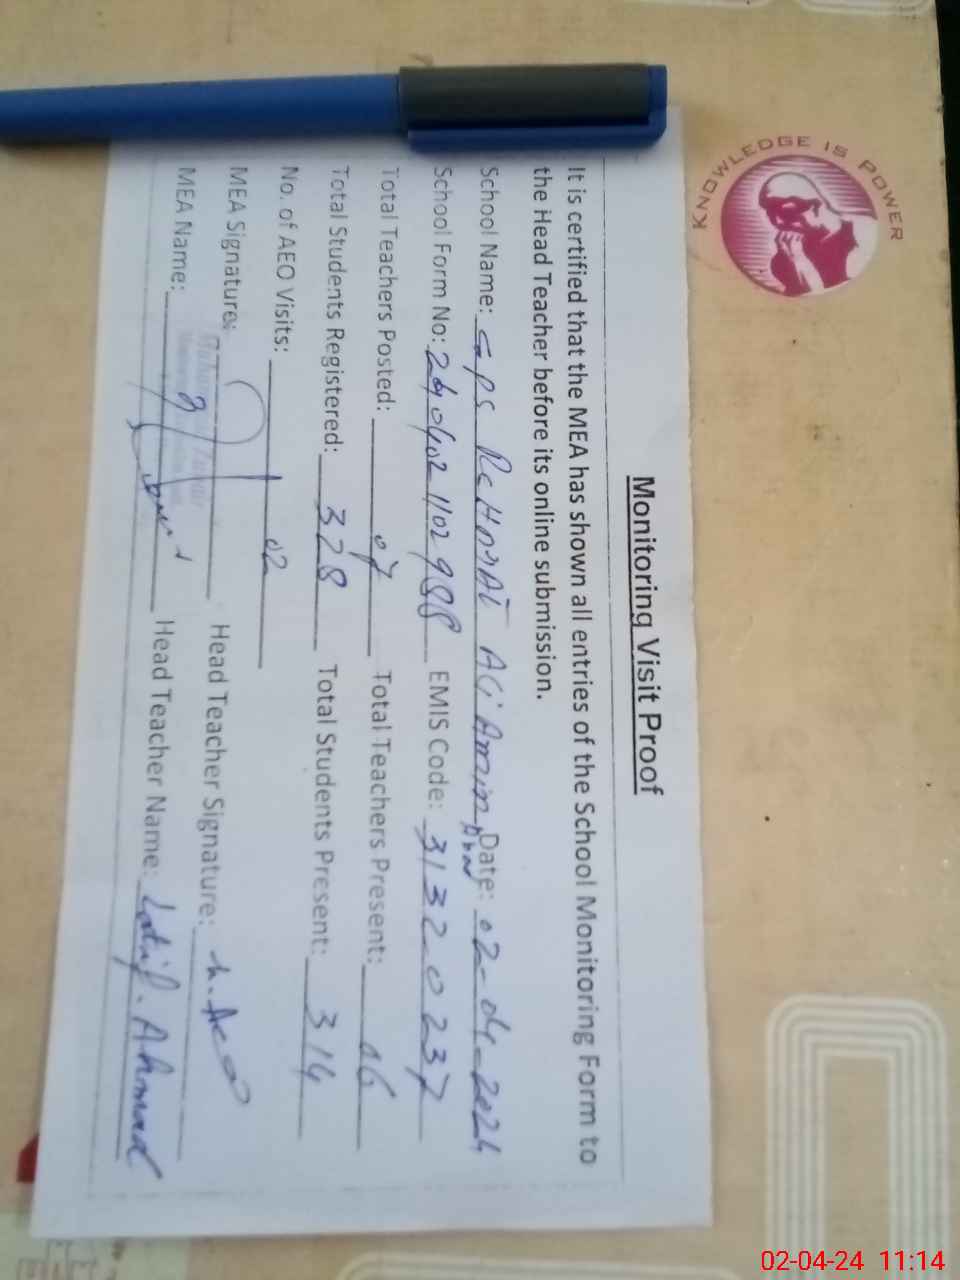 KNOWLEDGE IS POWER
Monitoring Visit Proof
It is certified that the MEA has shown all entries of the School Monitoring Form to
the Head Teacher before its online submission.
School Name: GPS Date: 02-04-2024
School Form No: EMIS Code: 31320237
Total Teachers Posted: 07 Total Teachers Present: 06
Total Students Registered: 328 Total Students Present: 314
No. of AEO Visits: 02
MEA Signature: Head Teacher Signature:
MEA Name: Head Teacher Name: Latif. Ahmad
02-04-24 11:14